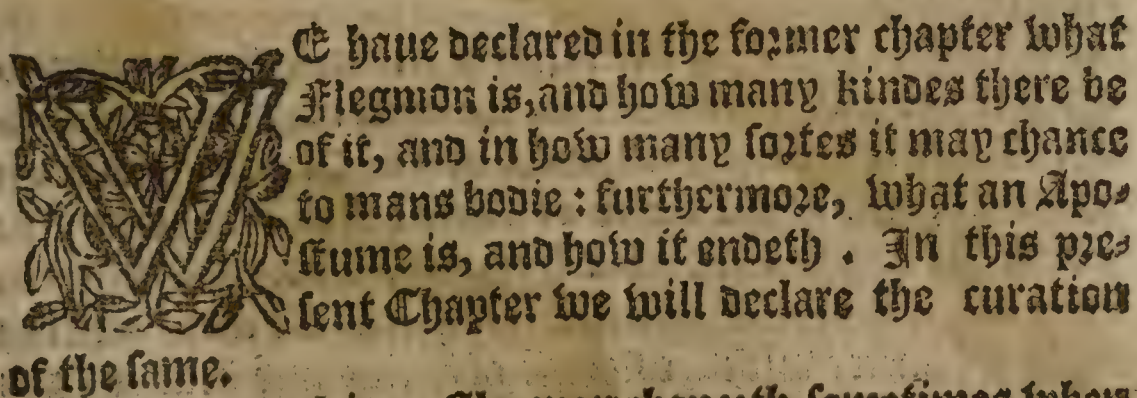 WE haue declared in the former chapter what
Flegmon is, and how many kindes there be
of it, and in how many sortes it may chance
to mans bodie : furthermore, what an Apo-
stume is, and how it endeth . In this pre-
sent Chapter we will declare the curation
of the same.
sometimes when